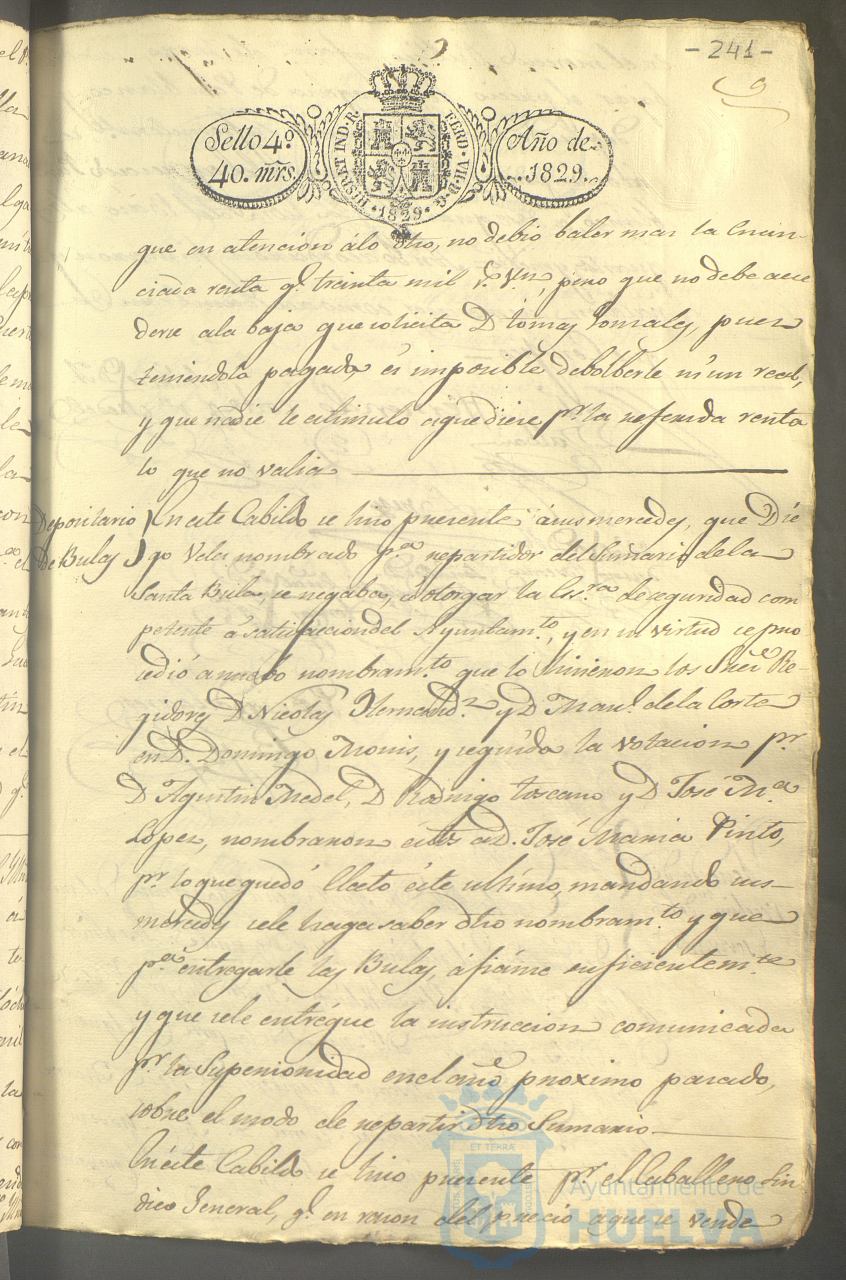 - 241 -
9
Sello 4.º
40. mrs.
HISP. ET IND. R. FERD. VII. D. G.
1829.
Año de
1829.
que en atencion álo dho, no debio baler mas la enun-
ciada renta q.e treinta mil r.s V.n, pero que no debe acce
derse ala baja que solicita D Tomas Gonzales, pues
teniendola pagada, és imposible debolberle ni un real,
y que nadie le estimulo aque diese p.r la referida renta
lo que no valia
Depositario
de Bulas
En este Cabildo se hizo presente ásus mercedes, que Die
go Velez nombrado p.a repartidor del Sumario dela
Santa Bula, se negaba, á otorgar la Es.ra deseguridad com
petente á satisfaccion del Ayuntam.to, y en su virtud se pro
cedió anuebo nombram.to que lo hicieron los Sres Re-
gidores D Nicolas Hernand.z y D Man.l dela Corte
en D. Domingo Monis, y seguida la votacion p.r
D Agustin Medel, D Rodrigo Toscano y D José M.a
Lopez, nombraron éstos a D. José Maria Pinto,
p.r loque quedó Electo éste ultimo, mandando sus
mercedes sele haga saber dho nombram.to y que
p.a entregarle las Bulas, áfiánse suficientem.te
y que sele entrégue la instruccion comunicada
p.r la Superioridad enel año proximo pasado,
sobre el modo de repartir dho Sumario.
En éste Cabildo se hizo presente p.r el Caballero Sin
dico General, q.e en razon del precio aque se vende
ET TERRÆ
Ayuntamiento de
HUELVA